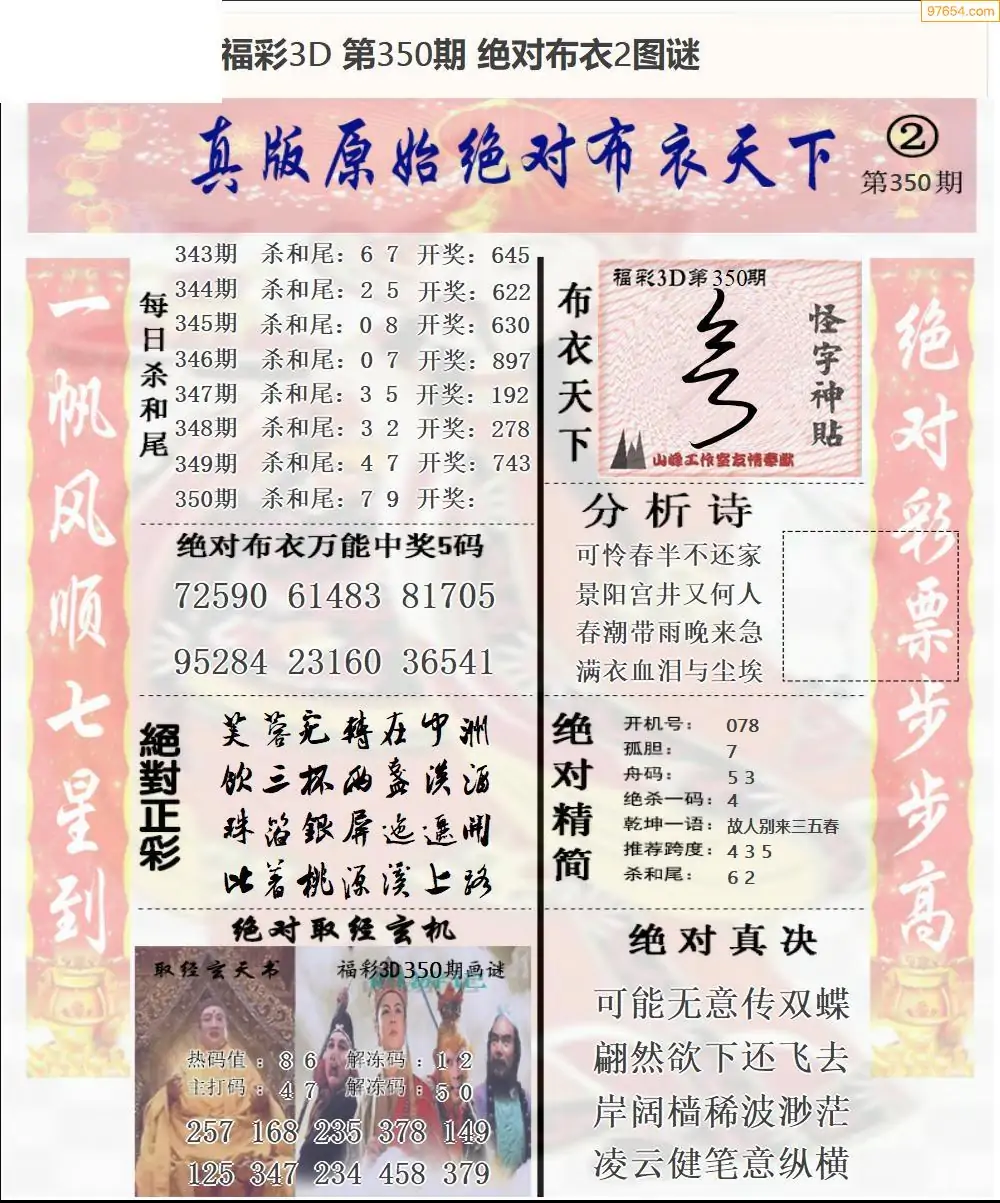 97654.com
福彩3D 第350期 绝对布衣2图谜
真版原始绝对布衣天下
②
第350期
一帆风顺七星到
每日杀和尾
343期 杀和尾：6 7 开奖：645
344期 杀和尾：2 5 开奖：622
345期 杀和尾：0 8 开奖：630
346期 杀和尾：0 7 开奖：897
347期 杀和尾：3 5 开奖：192
348期 杀和尾：3 2 开奖：278
349期 杀和尾：4 7 开奖：743
350期 杀和尾：7 9 开奖：
绝对布衣万能中奖5码
72590 61483 81705
95284 23160 36541
絕對正彩
芙蓉宛轉在中洲
飲三杯两盏淡酒
珠箔銀屏迤邐開
此着桃源溪上路
绝对取经玄机
取经玄天书
福彩3D350期画谜
热码值：8 6 解冻码：1 2
主打码：4 7 解冻码：5 0
257 168 235 378 149
125 347 234 458 379
布衣天下
福彩3D第350期
怪字神貼
山峰工作室友情奉献
分析诗
可怜春半不还家
景阳宫井又何人
春潮带雨晚来急
满衣血泪与尘埃
绝对精简
开机号： 078
孤胆： 7
舟码： 5 3
绝杀一码：4
乾坤一语：故人别来三五春
推荐跨度：4 3 5
杀和尾： 6 2
绝对真决
可能无意传双蝶
翩然欲下还飞去
岸阔樯稀波渺茫
凌云健笔意纵横
绝对彩票步步高